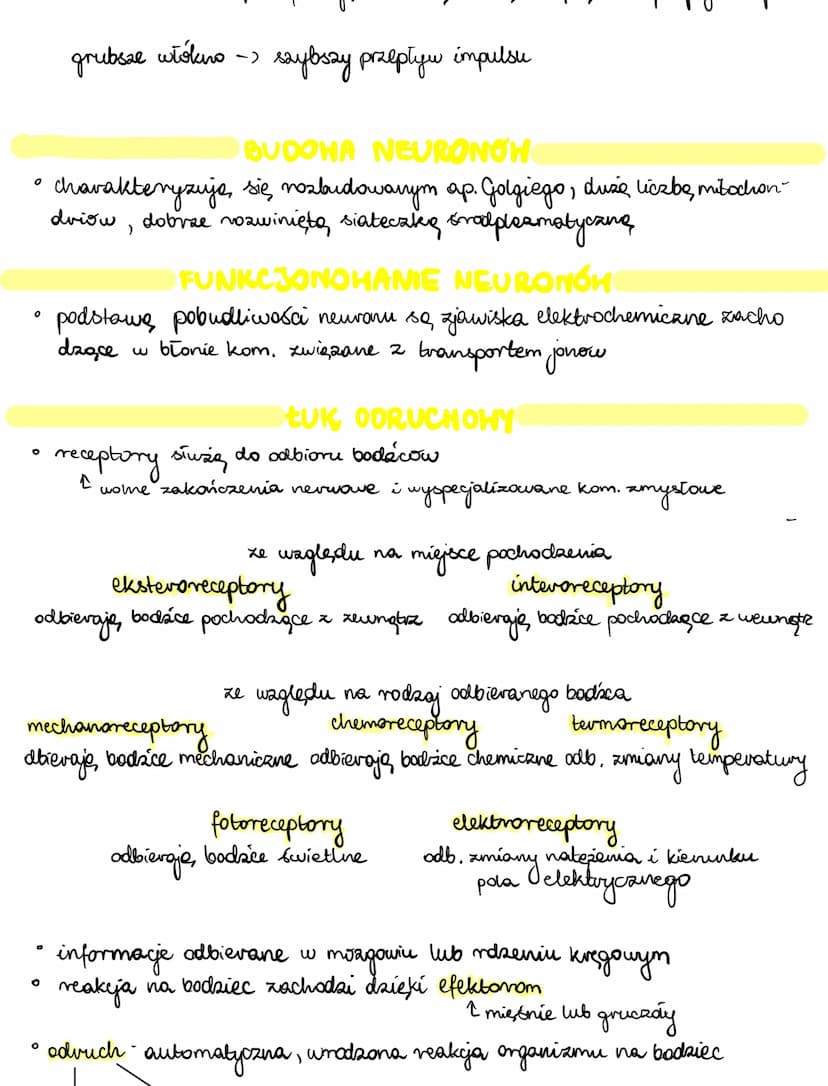 grubsze włókno -> szybszy przepływ impulsu
BUDOWA NEURONÓW
• charakteryzują się rozbudowanym ap. Golgiego, dużą liczbą mitochon-
driów, dobrze rozwiniętą siateczką śródplazmatyczną
FUNKCJONOWANIE NEURONÓW
• podstawą pobudliwości neuronu są zjawiska elektrochemiczne zacho
dzące w błonie kom. związane z transportem jonów
ŁUK ODRUCHOWY
• receptory służą do odbioru bodźców
↑ wolne zakończenia nerwowe i wyspecjalizowane kom. zmysłowe
ze względu na miejsce pochodzenia
eksteroreceptory interoreceptory
odbierają bodźce pochodzące z zewnątrz odbierają bodźce pochodzące z wewnątrz
ze względu na rodzaj odbieranego bodźca
mechanoreceptory chemoreceptory termoreceptory
dbierają bodźce mechaniczne odbierają bodźce chemiczne odb. zmiany temperatury
fotoreceptory elektroreceptory
odbierają bodźce świetlne odb. zmiany natężenia i kierunku
pola elektrycznego
• informacje odbierane w mózgowiu lub rdzeniu kręgowym
• reakcja na bodziec zachodzi dzięki efektorom
↑ mięśnie lub gruczoły
• odruch - automatyczna, wrodzona reakcja organizmu na bodziec